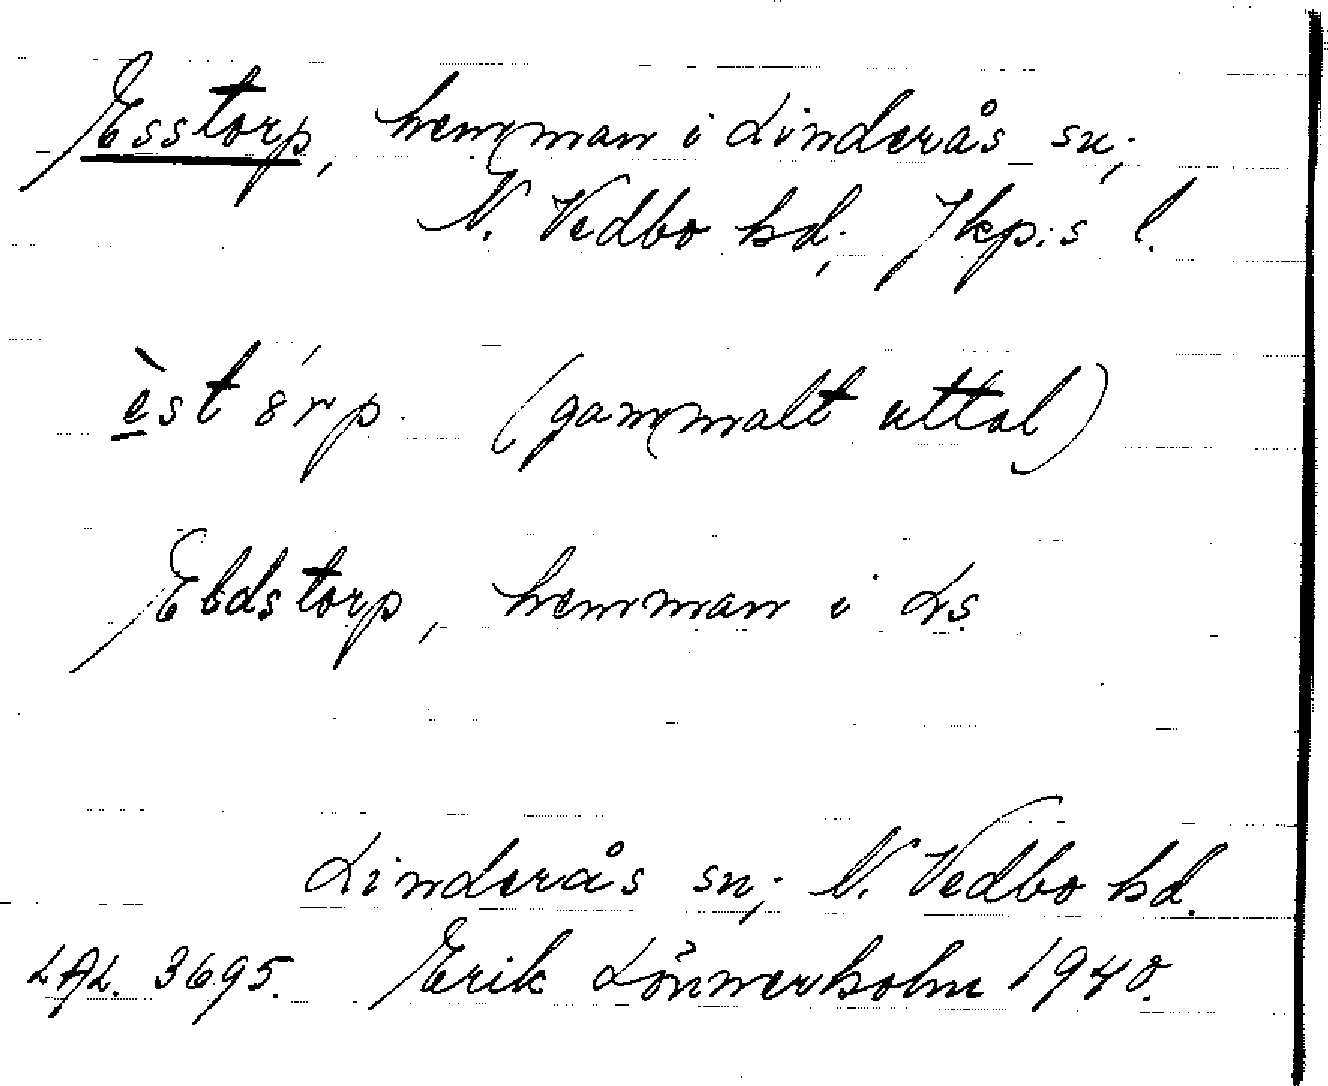 Esstorp, hemman i Linderås sn;
N. Vedbo hd; Jkp:s l.
èst órp. (gammalt uttal)
Ebdstorp, hemman i Ls
Linderås sn; N. Vedbo hd.
LAL. 3695. Erik Lönnerholm 1940.